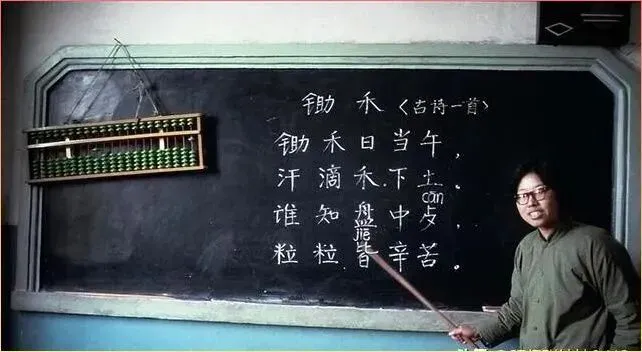 锄 禾〈古诗一首〉
锄禾日当午，
汗滴禾下土。
cān
谁知盘中歺，
jiē
粒粒皆辛苦。